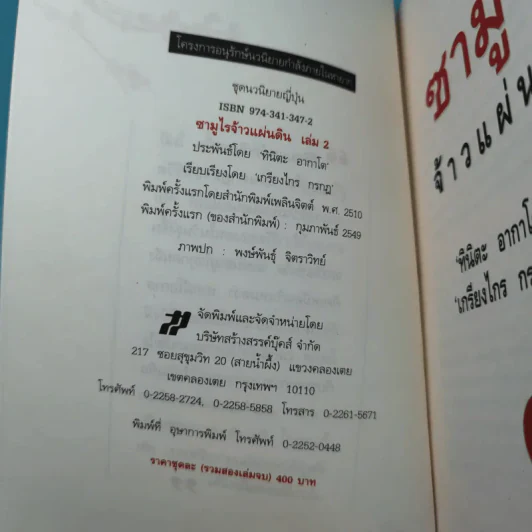 โครงการอนุรักษ์นวนิยายกำลังภายในหายาก
ชุดนวนิยายญี่ปุ่น
ISBN 974-341-347-2
ซามูไรจ้าวแผ่นดิน เล่ม 2
ประพันธ์โดย 'ทินิตะ อากาโต'
เรียบเรียงโดย 'เกรียงไกร กรกฎ'
พิมพ์ครั้งแรกโดยสำนักพิมพ์เพลินจิตต์ พ.ศ. 2510
พิมพ์ครั้งแรก (ของสำนักพิมพ์) : กุมภาพันธ์ 2549
ภาพปก : พงษ์พันธุ์ จิตราวิทย์
จัดพิมพ์และจัดจำหน่ายโดย
บริษัทสร้างสรรค์บุ๊คส์ จำกัด
217 ซอยสุขุมวิท 20 (สายน้ำผึ้ง) แขวงคลองเตย
เขตคลองเตย กรุงเทพฯ 10110
โทรศัพท์ 0-2258-2724, 0-2258-5858 โทรสาร 0-2261-5671
พิมพ์ที่ อุษาการพิมพ์ โทรศัพท์ 0-2252-0448
ราคาชุดละ (รวมสองเล่มจบ) 400 บาท
ซามู
จ้าวแผ่น
'ทินิตะ อากาโ
'เกรียงไกร กร